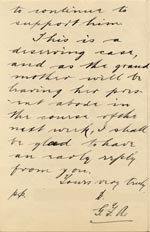 to continue to
support him
This is a
deserving case,
and as the grand
mother will be
leaving her pre
sent abode in
the course of the
next week, I shall
be glad to have
an early reply
from you.
Yours very truly
pp.